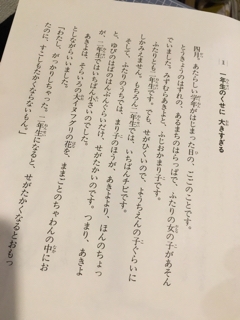 1 一年生のくせに 大きすぎる
四月、あたらしい学年がはじまった日の、ごごのことです。
とうきょうのはずれの、あるまちのはらっぱで、ふたりの女の子があそん
でいました。みずむらあきよと、ふじおかまり子です。
ふたりとも二年生です。でも、せがひくいので、ようちえんの子ぐらいに
しかみえません。もちろん二年生では、いちばんチビです。
そして、ふたりのうちでは、まり子のほうが、あきよより、ほんのちょっ
と、ゆびのはばのはんぶんぐらいだけ、せがたかいのです。つまり、あきよ
が、二年生ではいちばん小さいのでした。
あきよは、そらいろの大イヌフグリの花を、ままごとのちゃわんの中にお
としながらいいました。
「わたし、がっかりしちゃった。二年生になると、せがたかくなるとおもっ
たのに、すこしもたかくならないもん。」